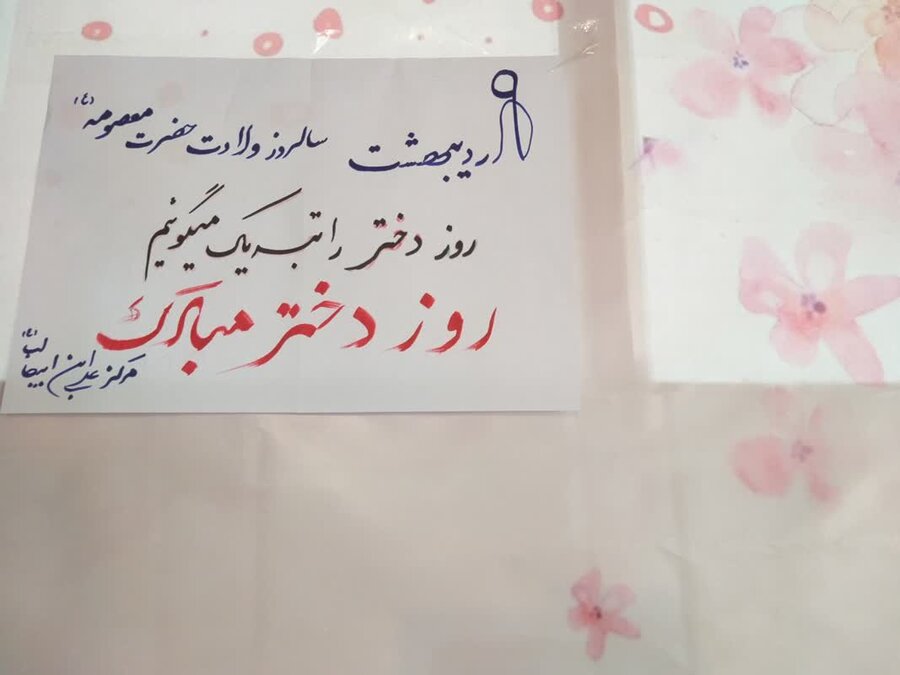 ۹ اردیبهشت سالروز ولادت حضرت معصومه (ع)
روز دختر را تبریک میگوئیم
روز دختر مبارک
مرکز علی ابن ابیطالب (ع)